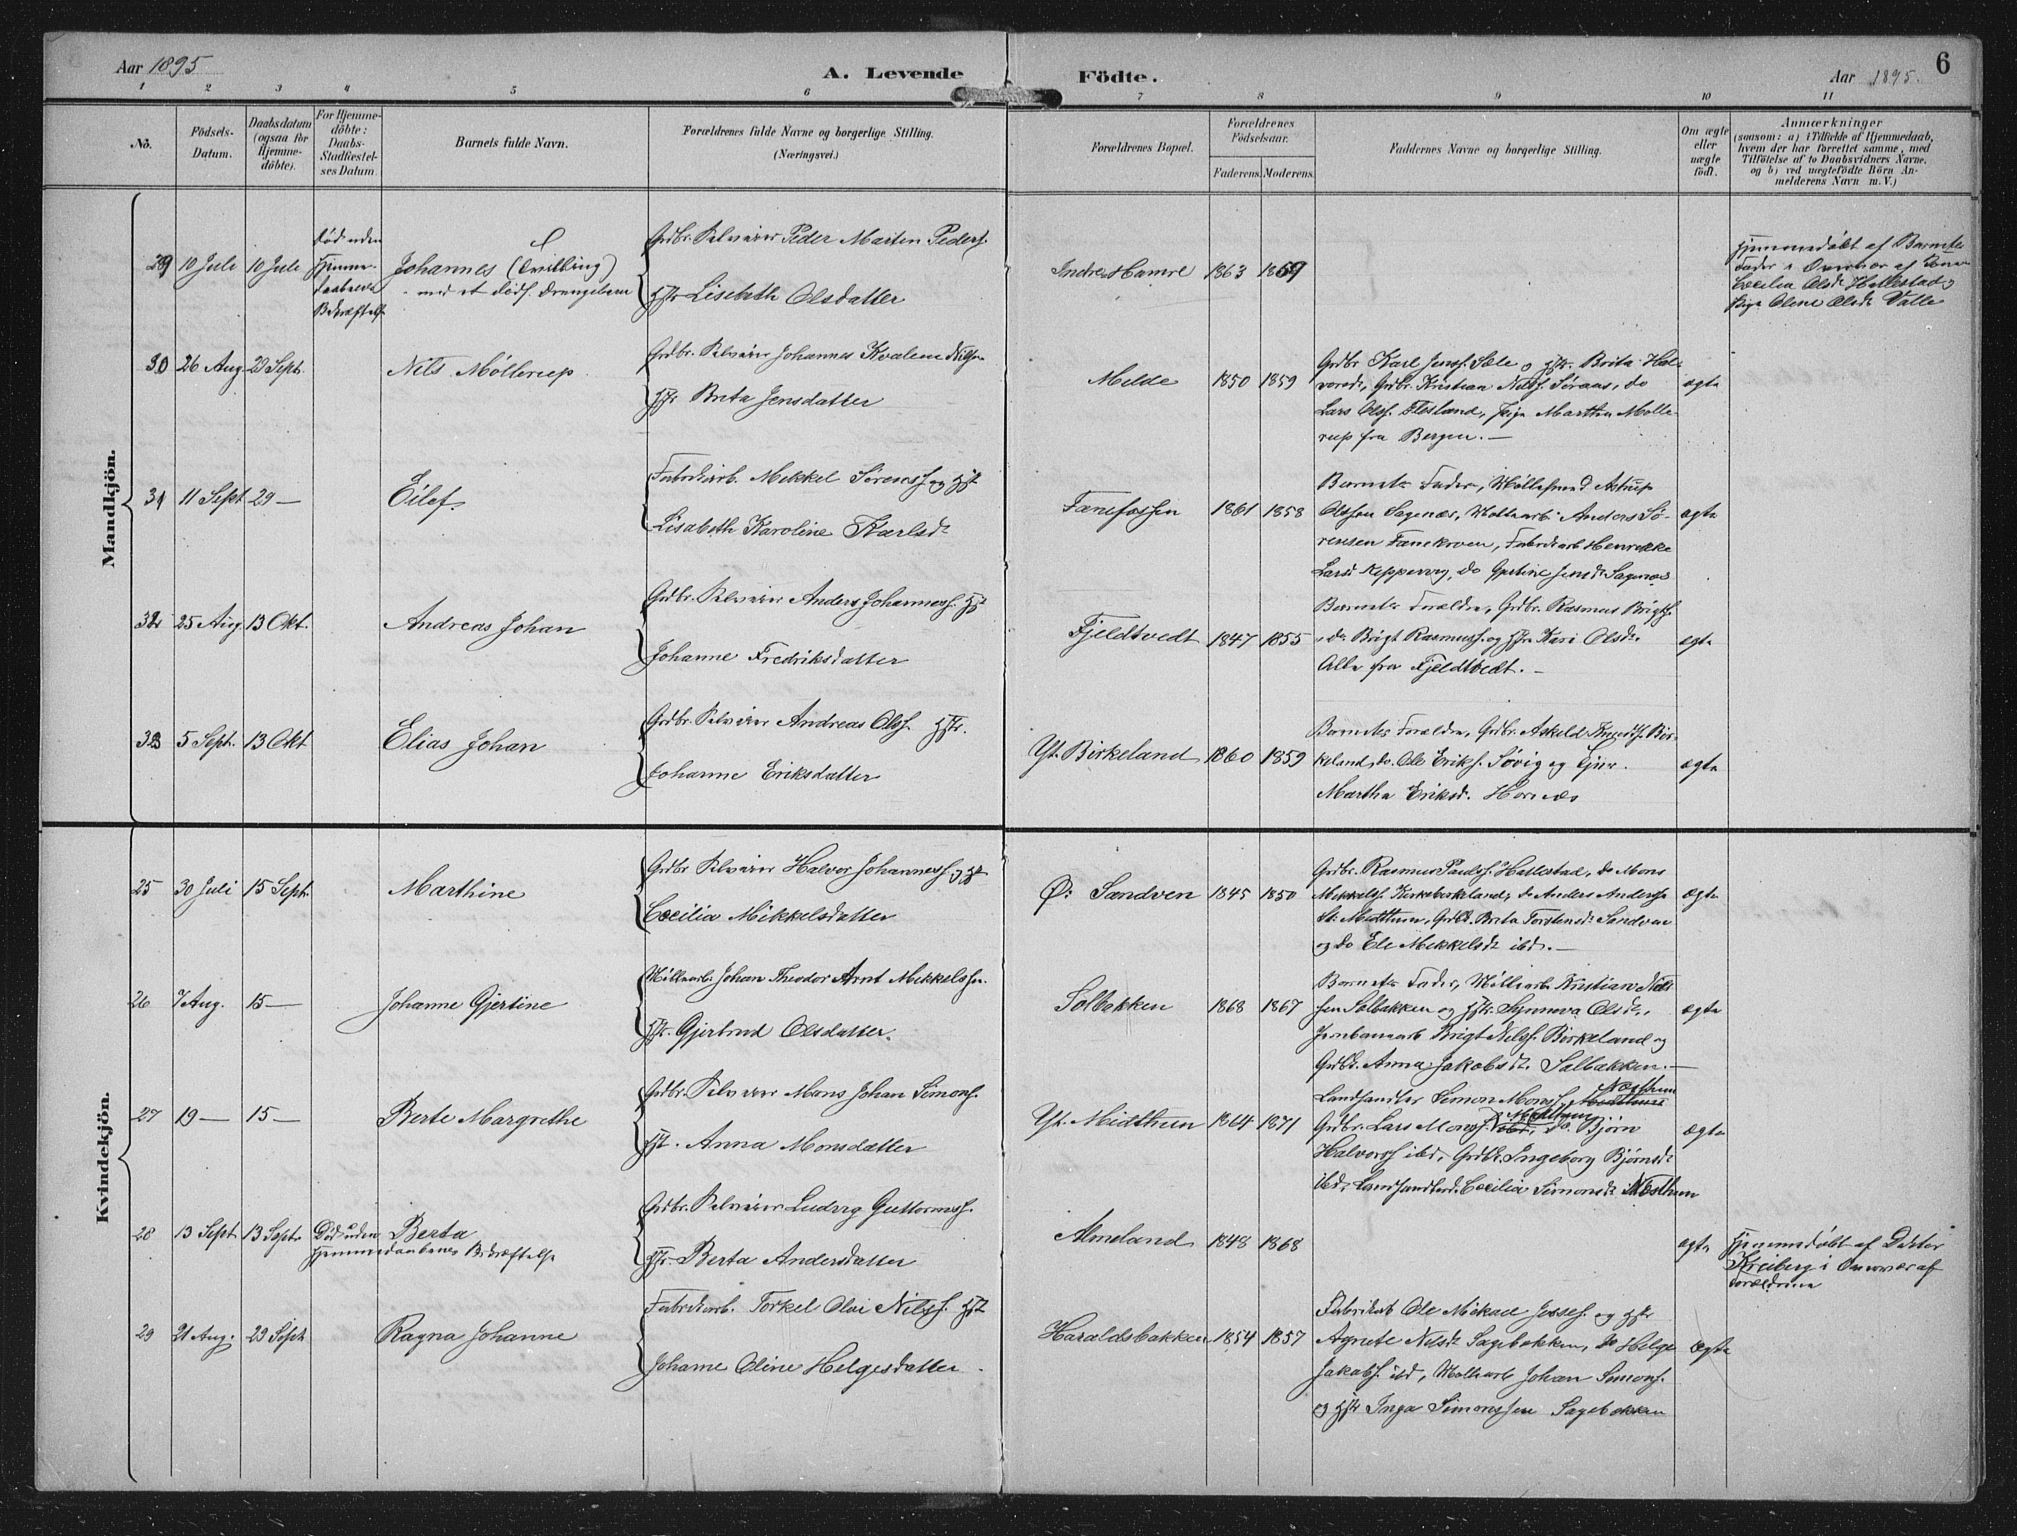 Aar 1895
A. Levende
Födte.
Aar 1895.
6
1 2 3 4 5 6 7 8 9 10 11
No.
Födsels-
Datum.
Daabsdatum
(ogsaa for
Hjemme-
döbte).
For Hjemme-
döbte:
Daabs-
Stadfæstel-
ses Datum.
Barnets fulde Navn.
Forældrenes fulde Navne og borgerlige Stilling.
(Næringsvei.)
Forældrenes Bopæl.
Forældrenes
Födselsaar.
Faderens. Moderens.
Faddernes Navne og borgerlige Stilling.
Om ægte
eller
uægte
födt.
Anmærkninger
(saasom: a) i Tilfælde af Hjemmedaab,
hvem der har forrettet samme, med
Tilföielse af to Daabsvidners Navne,
og b) ved uægtefödte Börn An-
melderens Navn m. V.)
Mandkjön.
29 10 Juli 10 Juli
Død uden
Hjemme-
daabens
Bekræftelse
Johannes (Tvilling)
med et dødf. Drengebarn
Grdbr. Selveier Peder Marten Peders.
Hstr Lisebeth Olsdatter
Indre Hamre 1863 1869
Hjemmedøbt af Barnets
Fader i Overvær af
Cecilia Olsdr Hallestad og
Pige Oline Olsdr Valle
30 26 Aug 29 Sept.
Nils Möllerup
Grdbr. Selveier Johannes Kvalem Nilsen
Hstr Brita Jensdatter
Melde 1850 1859
Grdbr Karl Jenss. Sæle og Hstr. Brita Hal-
vorsdr, Grdbr. Kristian Nilss. Søraas, do
Lars Olss. Flesland, Pige Martha Mølle-
rup fra Bergen. —
ægte
31 11 Sept 29 —
Eilef.
Fabrikarb. Mikkel Sörenss. og Hst
Lisabeth Karoline Karlsdr
Fanefossen 1861 1858
Barnets Fader, Møllesvend Astrup
Olssen Sagenæs, Møllearb. Anders Sö-
rensen Fanekroen, Fabrikarb Henrikke
Larsdr Kepperveg, do Gjertine Jensdr Sagenæs
ægte
32 25 Aug. 13 Okt.
Andreas Johan
Grdbr. Selveier Anders Johanness. Hst
Johanne Fredriksdatter
Fjeldtvedt 1847 1855
Barnets Forældre, Grdbr. Rasmus Brigts.
, do Brigt Rasmuss. og Hstr Kari Olsdr.
Alle fra Fjeldtvedt. —
ægte
33 5 Sept. 13 Okt
Elias Johan
Grdbr. Selveier Andreas Olss. Hstr.
Johanne Eriksdatter
Yt. Birkeland 1860 1859
Barnets Forældre, Grdbr. Askeld Knuds. Bir-
keland, do. Ole Eriks. Søvig og Tjen.
Martha Eriksd. Hornæs
ægte
Kvindekjön.
25 30 Juli 15 Sept.
Marthine
Grdbr Selveier Halvor Johanness. og Hst
Cecilia Mikkelsdatter
Ø. Sandven 1845 1850
Grdbr. Rasmus Pauls. Hallestad, do Mons
Mikkels. Kirkebirkeland, do Anders Anderss.
St. Midthun, Grdbr. Brita Torstensdr Sandven
og do Ele Mikkelsdr ibd. —
ægte
26 7 Aug. 15 —
Johanne Gjertine
Møllearb. Johan Theodor Arnt Mikkelssen.
Hstr. Gjertrud Olsdatter.
Solbakken 1868 1867
Barnets Fader, Møllearb Kristian Nils
sen Solbakken og Hstr. Synneva Olsdr.,
Jernbanearb Brigt Nilss. Birkeland og
Grdbr. Anna Jakobsdr. Solbakken. —
ægte
27 19 — 15 —
Berte Margrethe
Grdbr. Selveier Mons Johan Simons.
Hst. Anna Monsdatter
Yt. Midthun 1864 1871
Landhandler Simon Monss. Midthun Næsthun
Grdbr. Lars Monss. ibd. Midthun, do. Bjørn
Halvorss ibd, Grdbr. Ingeborg Bjørnsdr
ibd, Landhandlerd. Cecilia Simonsdr Næsthun
ægte
28 13 Sept 13 Sept.
Død uden
Hjemmedaabens Bekræftelse
Berta
Grdbr. Selveier Ludvig Guttorms.
Hstr. Berta Andersdatter
Almeland 1848 1868
ægte
Hjemmedøbt af Doktor
Kreiberg i Overvær af
Forældrene
29 21 Aug. 29 Sept
Ragna Johanne
Fabrikarb. Torkel Olai Nilss. Hst
Johanne Oline Helgesdatter
Haraldsbakken 1854 1857
Fabrikarb Ole Mikael Joses. og Hstr
Agnete Nilsdr Sagebakken, do Helge
Jakobs. ibd, Møllearb Johan Simons.
og Hstr Inga Simonssen Sagebakken
ægte